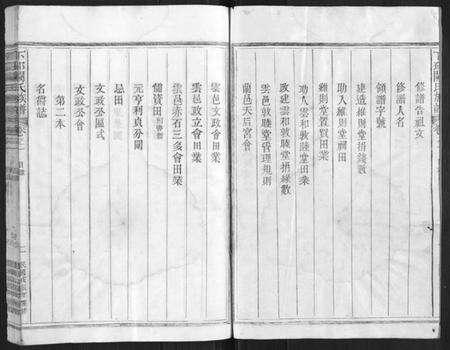 修譜告祖文
修譜人名
領譜字號
建造維則堂捐錢數
助入維則堂祠田
維則堂置買田業
助入雲和敦睦堂田業
改建雲和敦睦堂捐緣數
雲邑敦睦堂管理規則
蘭邑天后宮會
雲邑文政會田業
雲邑政立會田業
雲邑赤石三多會田業
儲賢田
元亨利貞分關
忌田
文政公區式
文政公會
第二本
名衡誌
下邳闕氏族譜